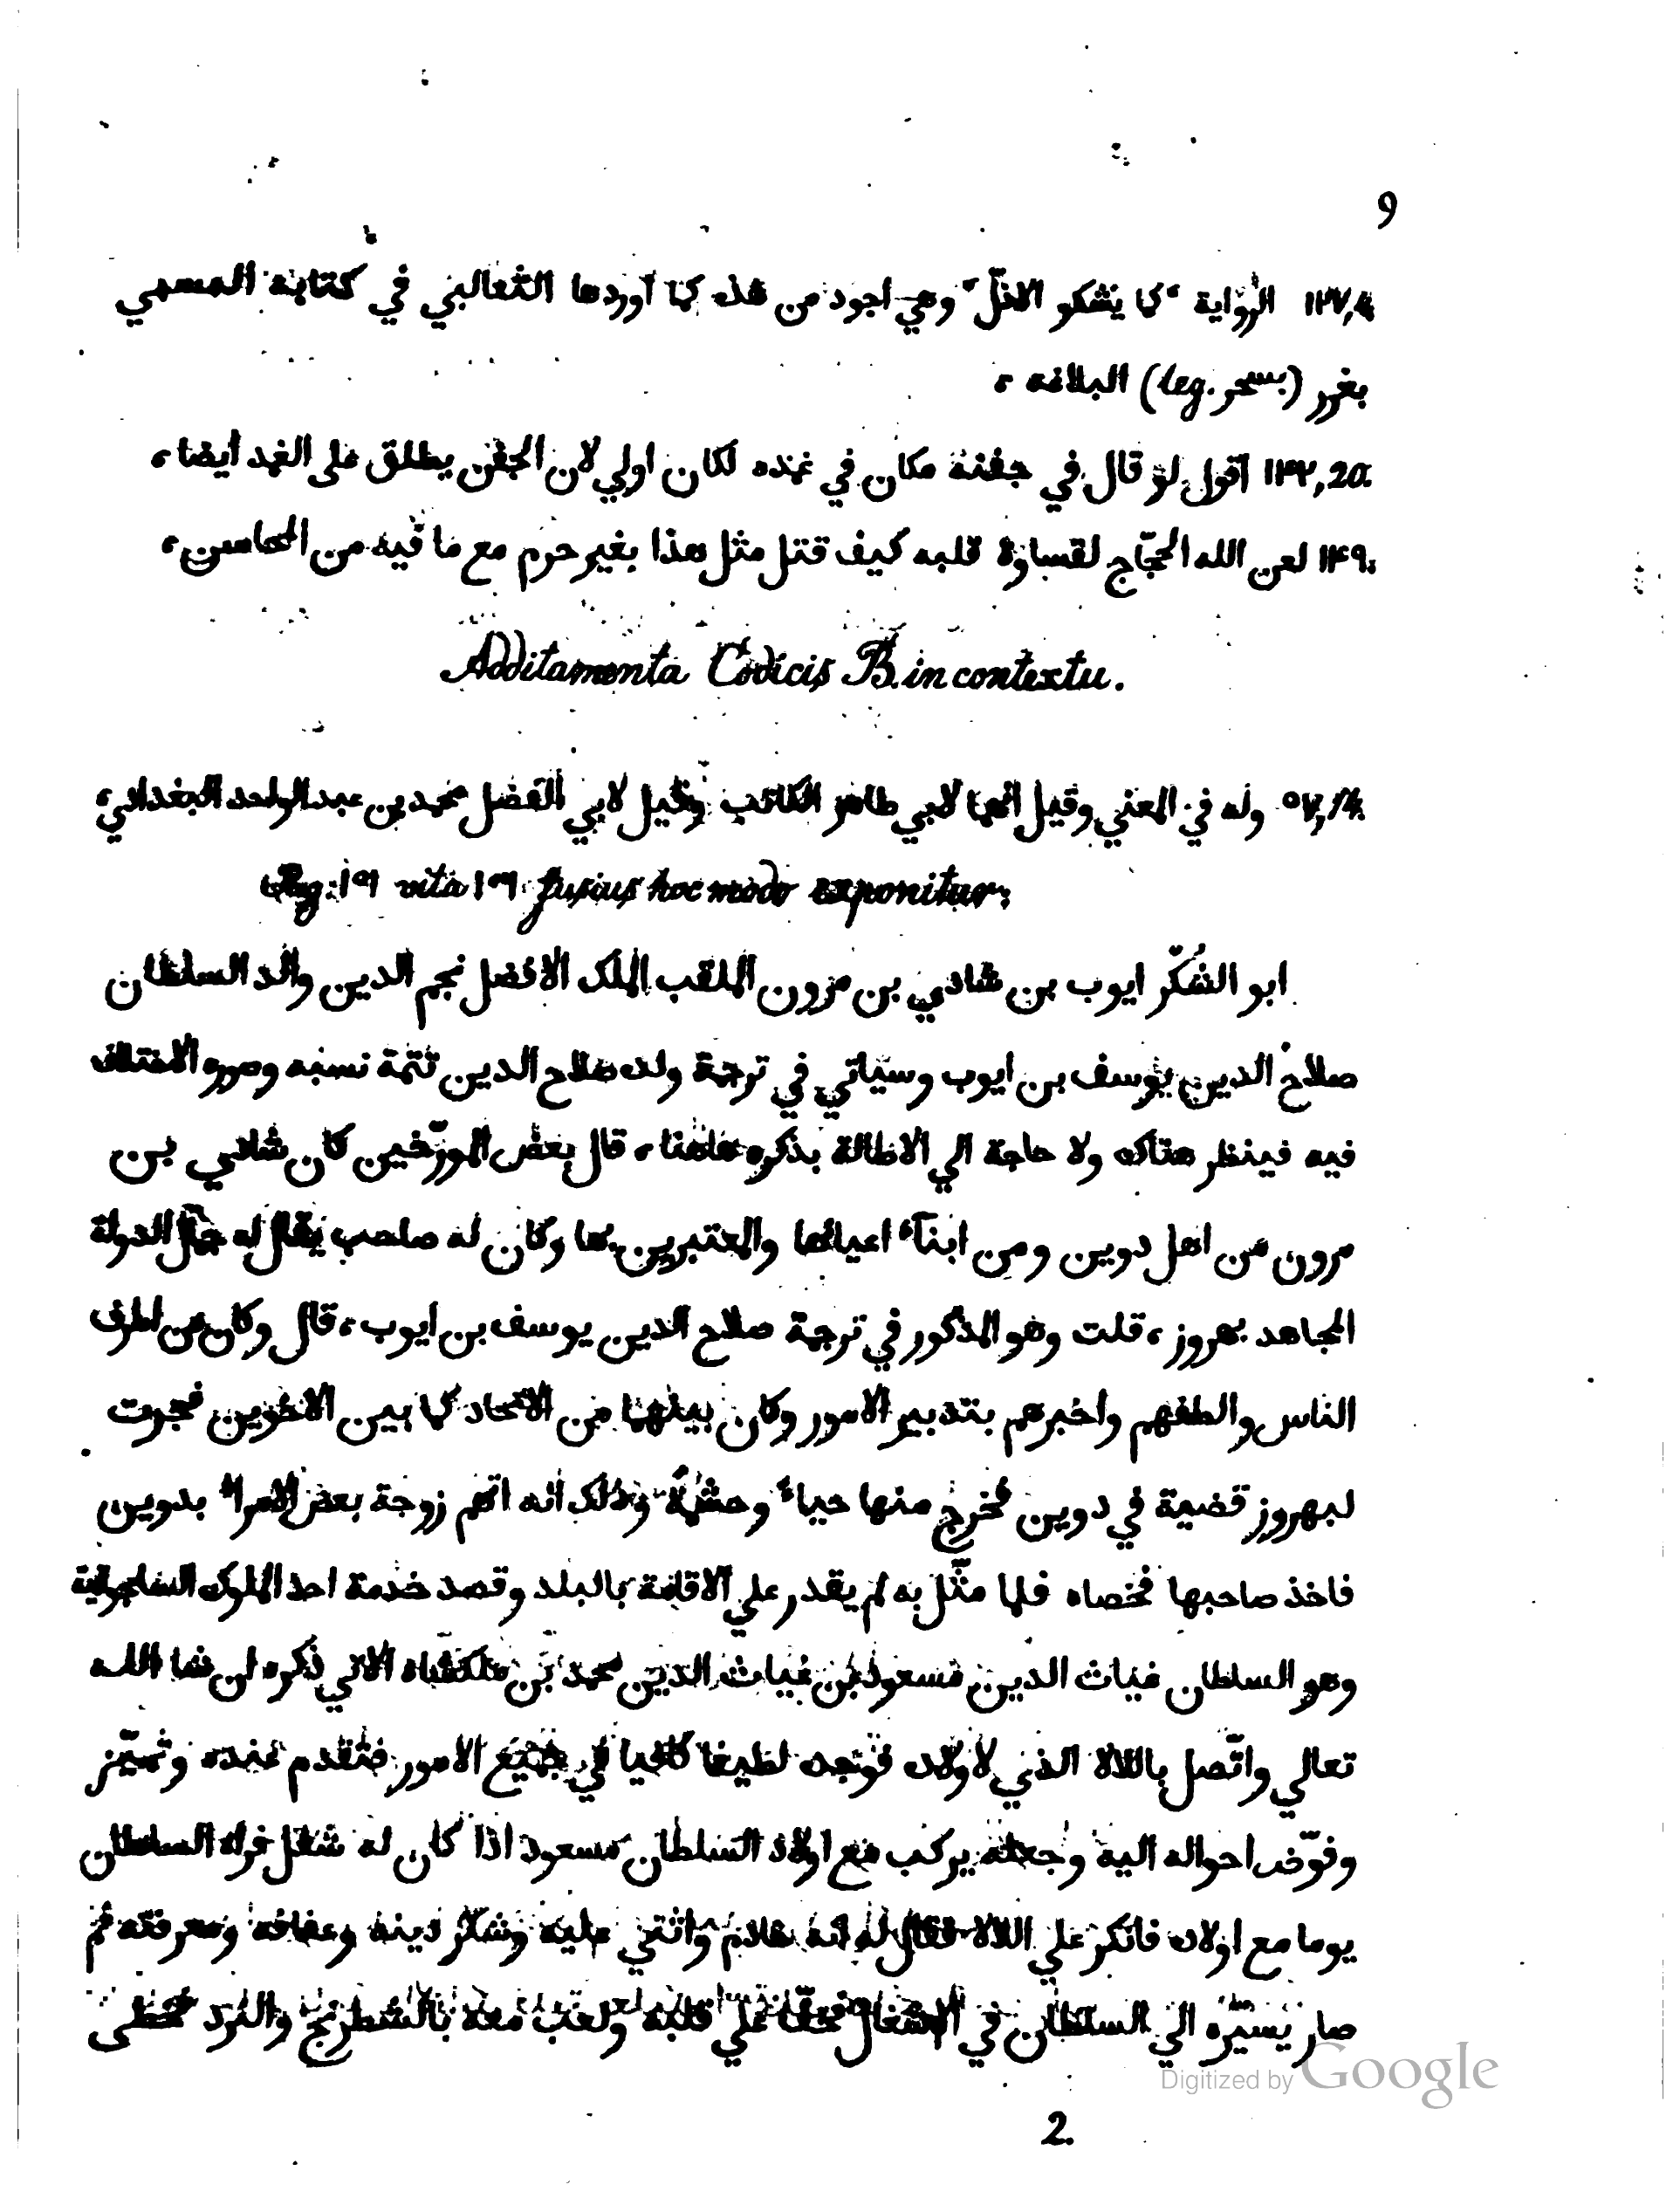 9
١٣٧,4 الرّواية ”كما يشكو الاخلّ“ وهي اجود من هذه كما اوردها الثعالبي في كتابه المسمي
بغرر (leg. بسحر) البلاغه ،
١٤٢,20. اقول لو قال في جفنه مكان في غمده لكان اولي لان الجفن يطلق على الغمد أيضا ،
١٤٩. لعن الله الحجّاج لقساوة قلبه كيف قتل مثل هذا بغير حرم مع ما فيه من المحاسن ،
Additamenta Codicis B. in contextu.
٥٧,14. وله في المعني وقيل انهما لابي طاهر الكاتب وقيل لابي الفضل محمد بن عبد الواحد البغدادي ،
Pag. ١٥١ vita ١٠٦ fusius hoc modo exponitur:
ابو الشُكّر ايوب بن شادي بن مرون الملقب الملك الافضل نجم الدين والد السلطان
صلاح الدين يوسف بن ايوب وسياتي في ترجمة ولده صلاح الدين تتمّة نسبه وصوره الاختلاف
فيه فينظر هناك ولا حاجة الي الاطالة بذكره هاهنا ، قال بعض المورّخين كان شادي بن
مرون من اهل دوين ومن ابنآء اعيانها والمعتبرين بها وكان له صاحب يقال له جمال الدولة
المجاهد بهروز ، قلت وهو المذكور في ترجمة صلاح الدين يوسف بن ايوب ، قال وكان من اظرف
الناس والطفهم واخبرهم بتدبير الامور وكان بينهما من الاتحاد كما بين الاخوين فجرت
لبهروز قضية في دوين فخرج منها حياءً وحشمةً وذلك انه اتهم زوجة بعض الامراء بدوين
فاخذ صاحبها فخصاه فلما مثّل به لم يقدر علي الاقامة بالبلد وقصد خدمة احد الملوك السلجوقية
وهو السلطان غياث الدين مسعود بن غياث الدين محمد بن ملكشاه الاتي ذكره ان شا الله
تعالي واتّصل باللالا الذي لاولاده فوجده لطيفا كافيا في جميع الامور فتقدم عنده وتميّز
وفوّض احواله اليه وجعله يركب مع اولاد السلطان مسعود اذا كان له شغل فراه السلطان
يوما مع اولاده فانكر علي اللالا فقال له انه خادم واثني عليه وشكر دينه وعفافه ومعرفته ثم
صار يسيّره الي السلطان في الاشغال فخفّ علي قلبه ولعب معه بالشطرنج والنرد فحظى
2.
Digitized by Google